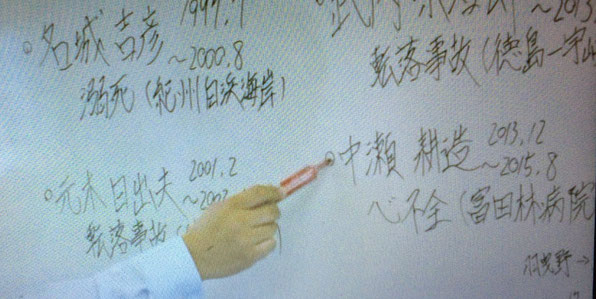 1997.7
○名城吉彦
～2000.8
溺死（紀州白浜海岸）
～2013.
転落事故（徳島一宇
○元木日出夫 2001.2
転落事故（
○中瀬 耕造 2013.12
～2015.8
心不全（富田林病院
羽曳野→